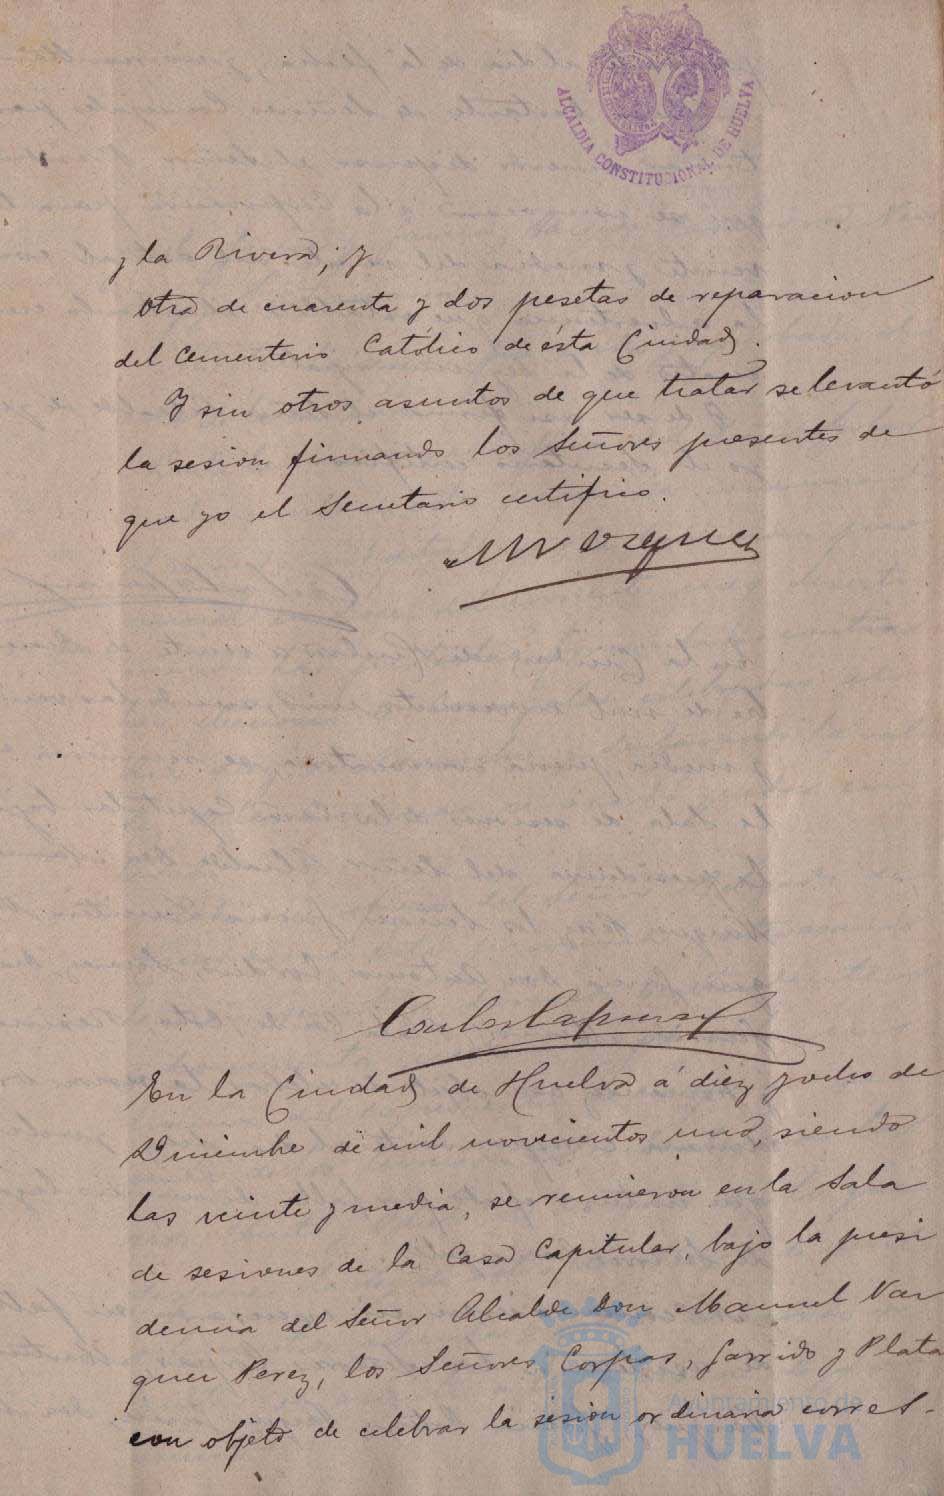 ALCALDIA CONSTITUCIONAL DE HUELVA
y la Rivera; y
otra de cuarenta y dos pesetas de reparacion
del Cementerio Católico de ésta Ciudad.
Y sin otros asuntos de que tratar se levantó
la sesion firmando los Señores presentes de
que yo el Secretario certifico.
En la Ciudad de Huelva á diez y ocho de
Diciembre de mil novecientos uno, siendo
las veinte y media, se reunieron en la Sala
de sesiones de la Casa Capitular, bajo la presi
dencia del Señor Alcalde Don Manuel Vaz
quez Perez, los Señores Corpas, Garrido y Plata
con objeto de celebrar la sesion ordinaria corres-
Ayuntamiento de
HUELVA